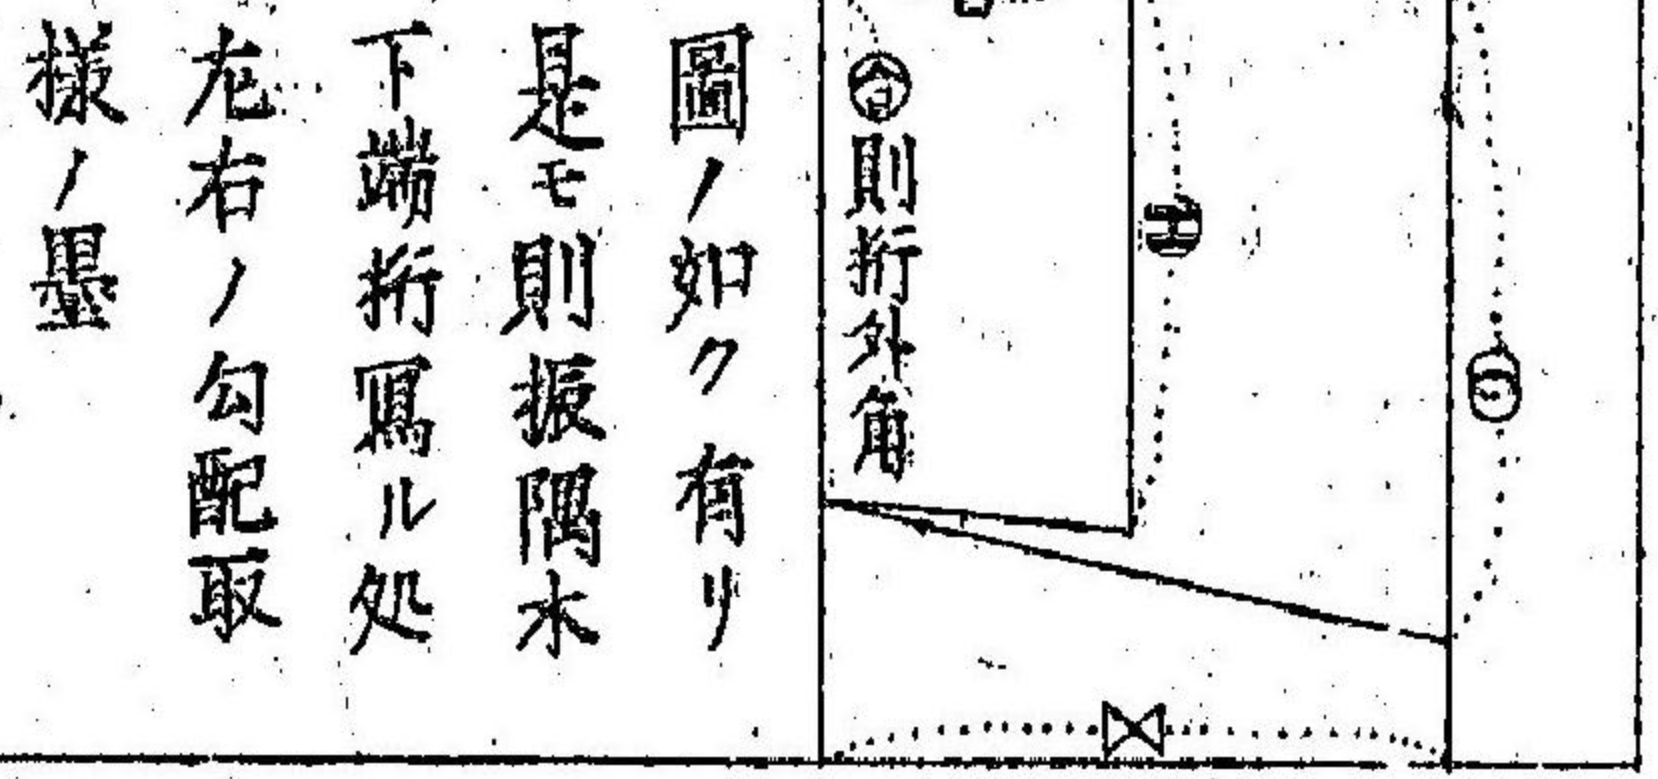 則桁外角
圖ノ如ク有リ
是モ則振隅木
下端桁寫ル処
左右ノ勾配取
様ノ墨